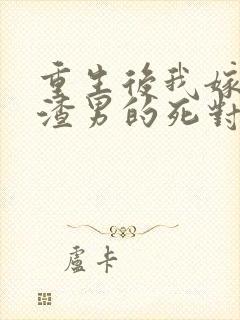 重生後我嫁
渣男的死對
盧卡